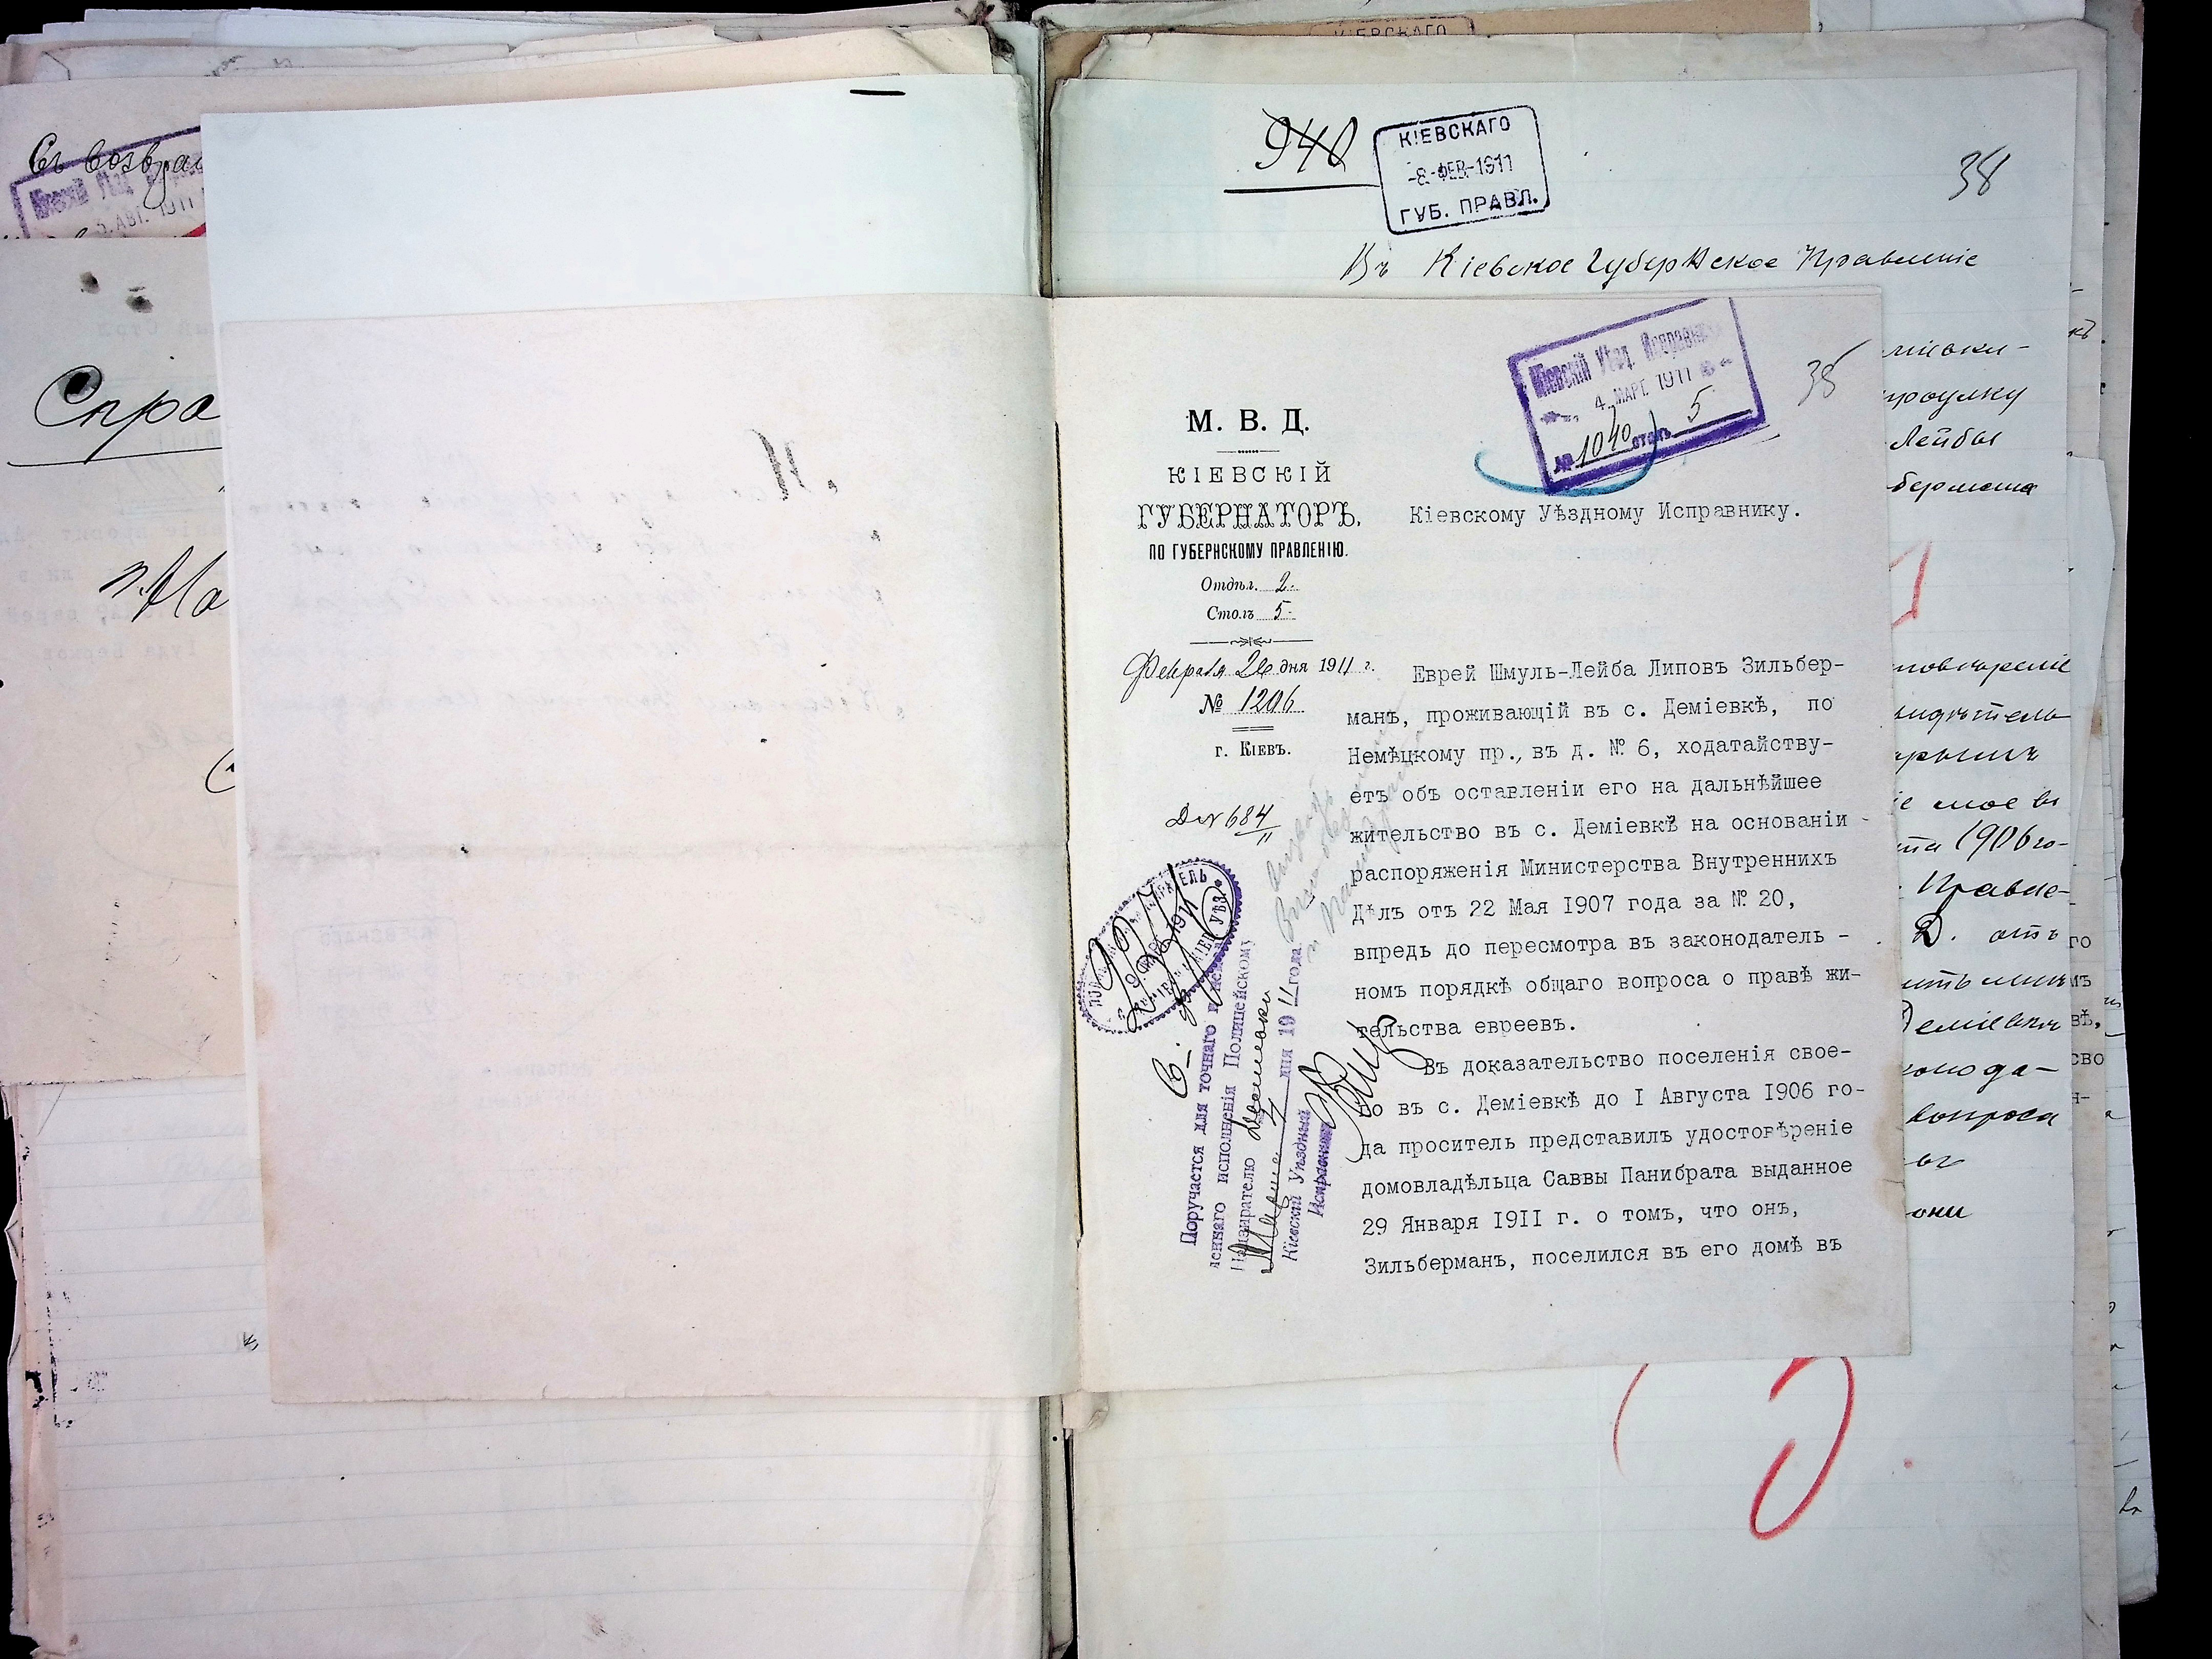 Съ возвра
Кіевскій Уѣзд.
АВГ. 1911
Спра
940
КІЕВСКАГО
-8-ФЕВ-1911
ГУБ. ПРАВЛ.
38
Въ Кіевское Губернское Правленіе
Кіевскій Уѣзд. Исправник
4 МАРТ. 1911
№ 1040 столъ 5
38
М. В. Д.
КІЕВСКІЙ
ГУБЕРНАТОРЪ,
ПО ГУБЕРНСКОМУ ПРАВЛЕНІЮ.
Отдѣл. 2.
Столъ 5.
Февраля 26 дня 1911 г.
№ 1206
г. КІЕВЪ.
Д № 684/11
Кіевскому Уѣздному Исправнику.
Еврей Шмуль-Лейба Липовъ Зильбер-
манъ, проживающій въ с. Деміевкѣ, по
Немѣцкому пр., въ д. № 6, ходатайству-
етъ объ оставленіи его на дальнѣйшее
жительство въ с. Деміевкѣ на основаніи
распоряженія Министерства Внутреннихъ
Дѣлъ отъ 22 Мая I907 года за № 20,
впредь до пересмотра въ законодатель -
номъ порядкѣ общаго вопроса о правѣ жи-
тельства евреевъ.
Въ доказательство поселенія свое-
го въ с. Деміевкѣ до I Августа I906 го-
да проситель представилъ удостовѣреніе
домовладѣльца Саввы Панибрата выданное
29 Января I9II г. о томъ, что онъ,
Зильберманъ, поселился въ его домѣ въ
Поручается для точнаго и
леннаго исполненія Полицейскому
Надзирателю Деміевки
Марта 4 дня 1911 года
Кіевскій Уѣздный
Исправникъ
проулку
Лейбы
бермана
мое въ
1906 го-
Правле-
Д. отъ
Деміевкѣ
вопроса